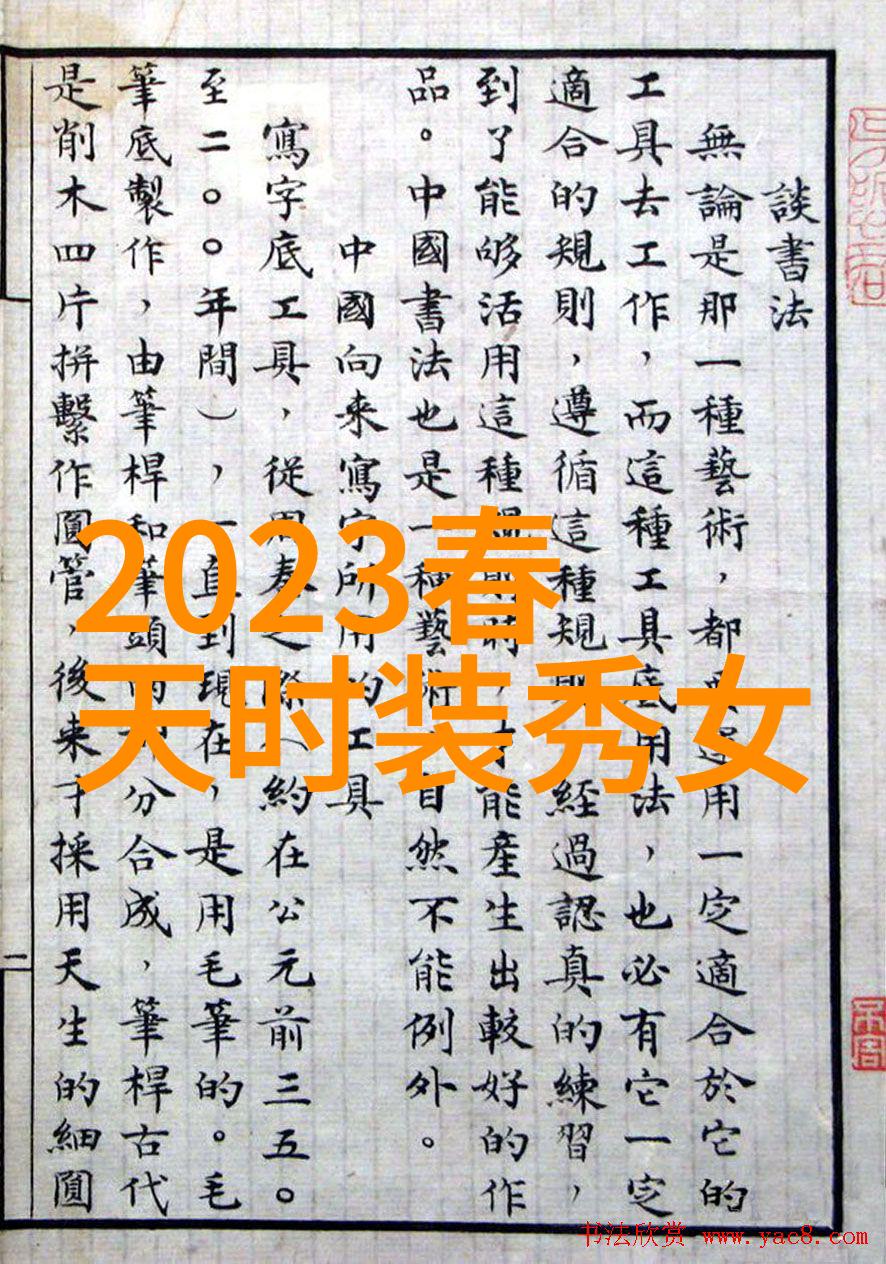 談書法
無論是那一種藝術，都用一定適合於它的
工具去工作，而這種工具底用法，也必有它一定
適合的規則，遵循這種規則，經過認真的練習，
到了能够活用這種規則時，才能產生出較好的作
品。中國書法也是一種藝術，自然不能例外。
中國向来寫字所用的工具
寫字底工具，從周春之際（約在公元前三五。
至二。。年間），一直到現在，是用毛筆的。毛
筆底製作，由筆桿和筆頭兩部分合成，筆桿古代
是削木四片拼繫作圓管，後来才採用天生的細圓
二
2023春
天时装秀女
书法欣赏 www.yac8.com